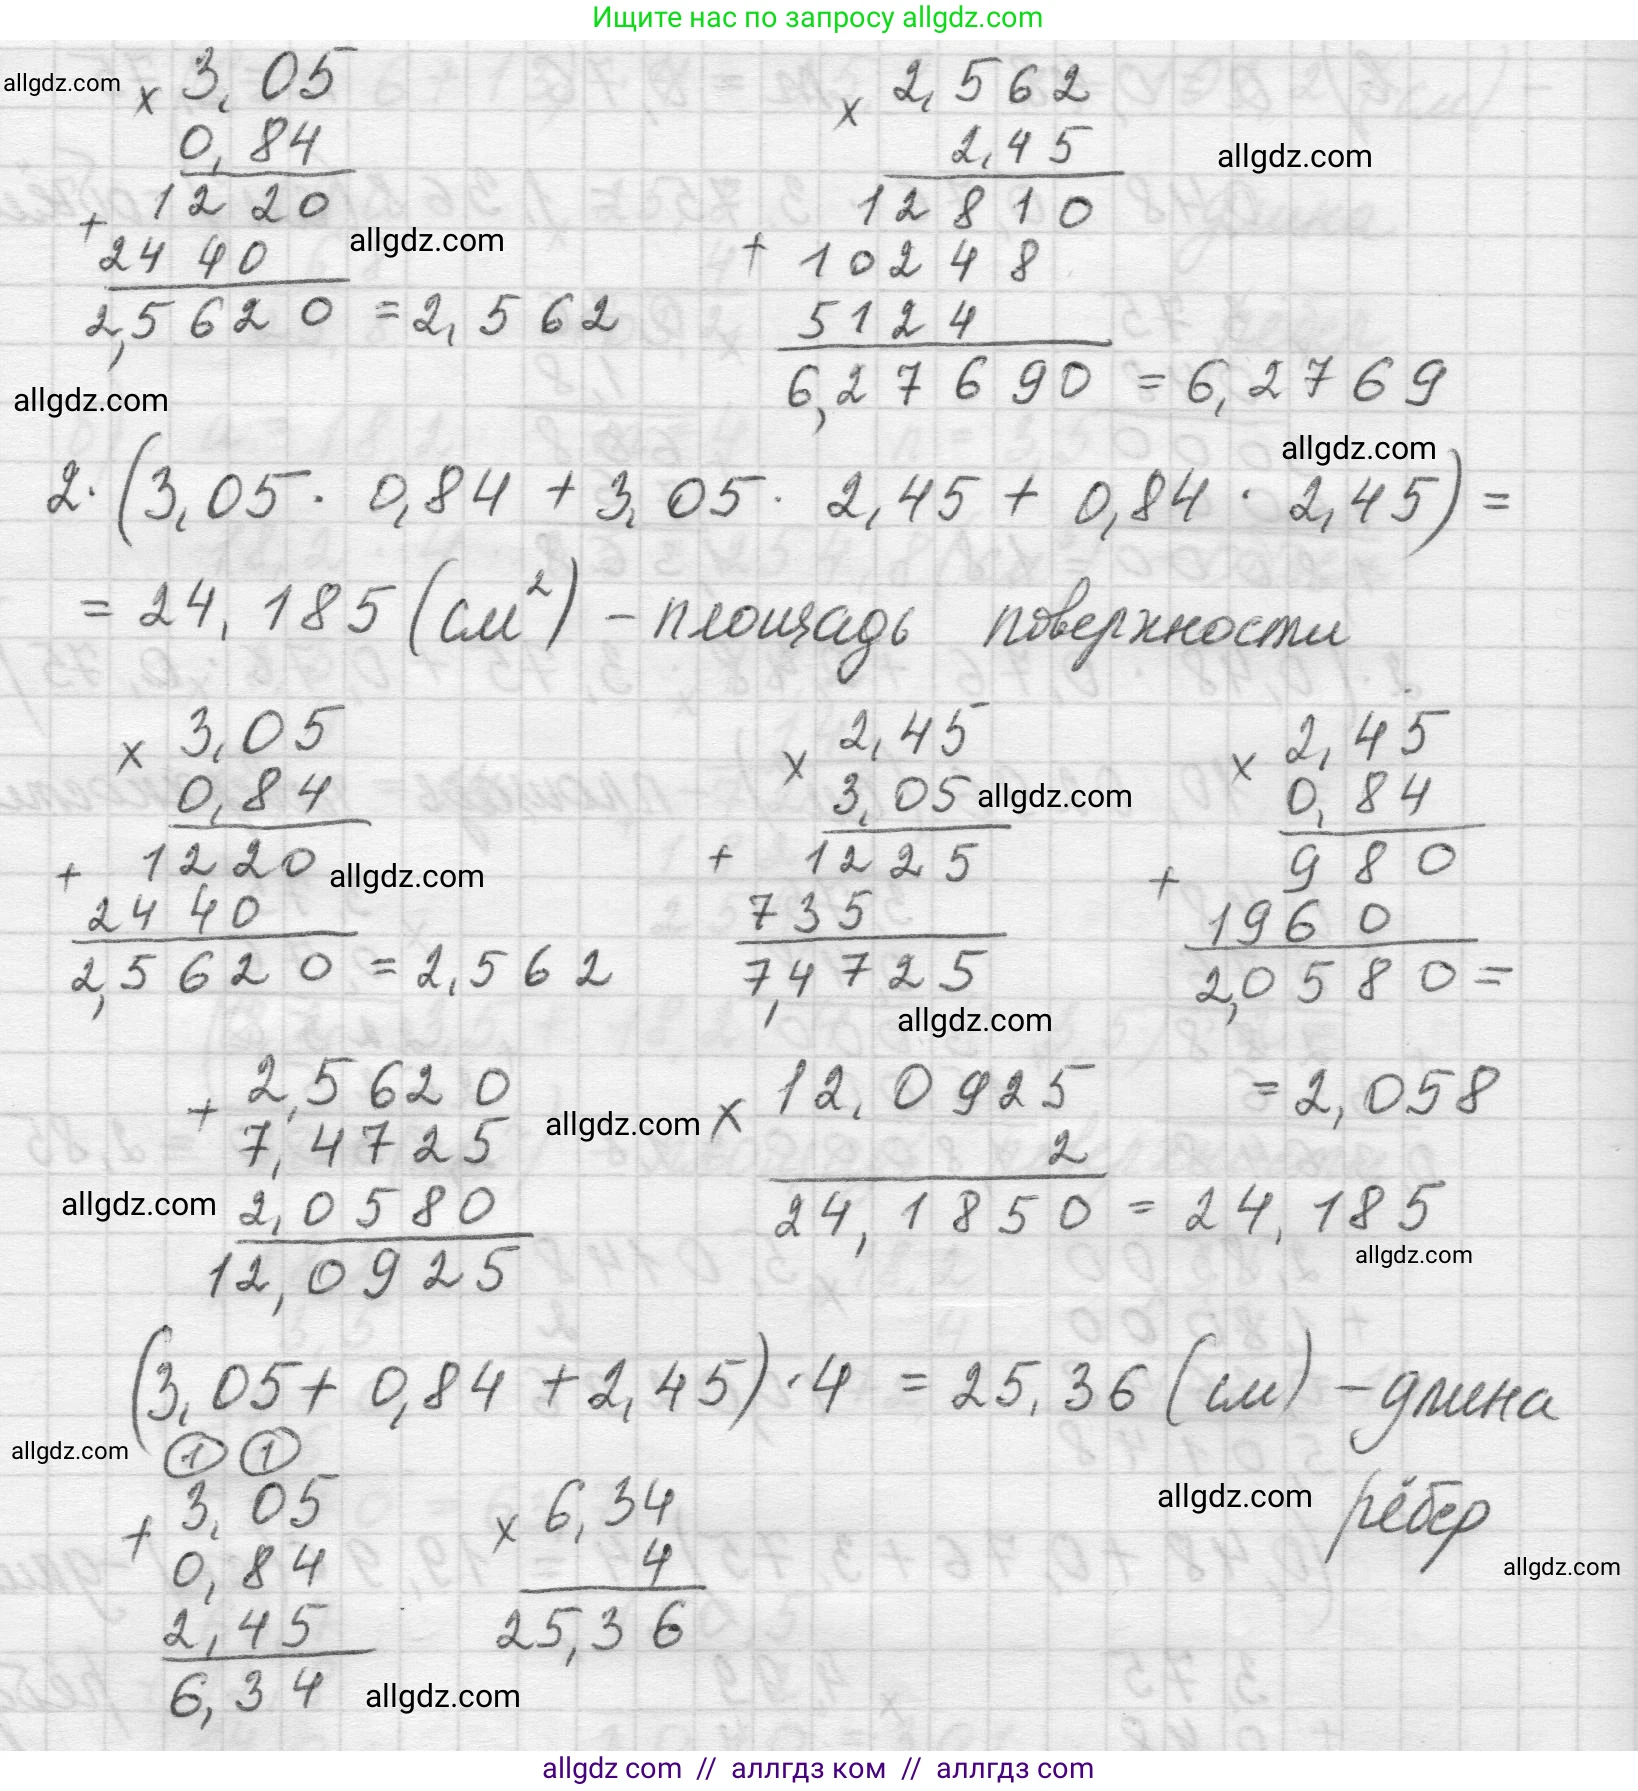 Ищите нас по запросу allgdz.com
allgdz.com × 3,05
0,84
+ 1220
2440 allgdz.com
2,5620 = 2,562
× 2,562
2,45 allgdz.com
12810
+ 10248
5124
6,27690 = 6,2769
allgdz.com
allgdz.com
2·(3,05 · 0,84 + 3,05 · 2,45 + 0,84 · 2,45) =
= 24,185 (см²) – площадь поверхности
× 3,05
0,84
+ 1220 allgdz.com
2440
2,5620 = 2,562
× 2,45
3,05 allgdz.com
+ 1225
735
7,4725
allgdz.com
× 2,45
0,84
+ 980
1960
2,0580 =
= 2,058
+ 2,5620
7,4725 allgdz.com
allgdz.com 2,0580
12,0925
× 12,0925
2
24,1850 = 24,185
allgdz.com
(3,05 + 0,84 + 2,45) · 4 = 25,36 (см) – длина
рёбер
allgdz.com 1 1
+ 3,05
0,84
2,45
6,34 allgdz.com
× 6,34
4
25,36
allgdz.com
allgdz.com
allgdz com // аллгдз ком // аллгдз com